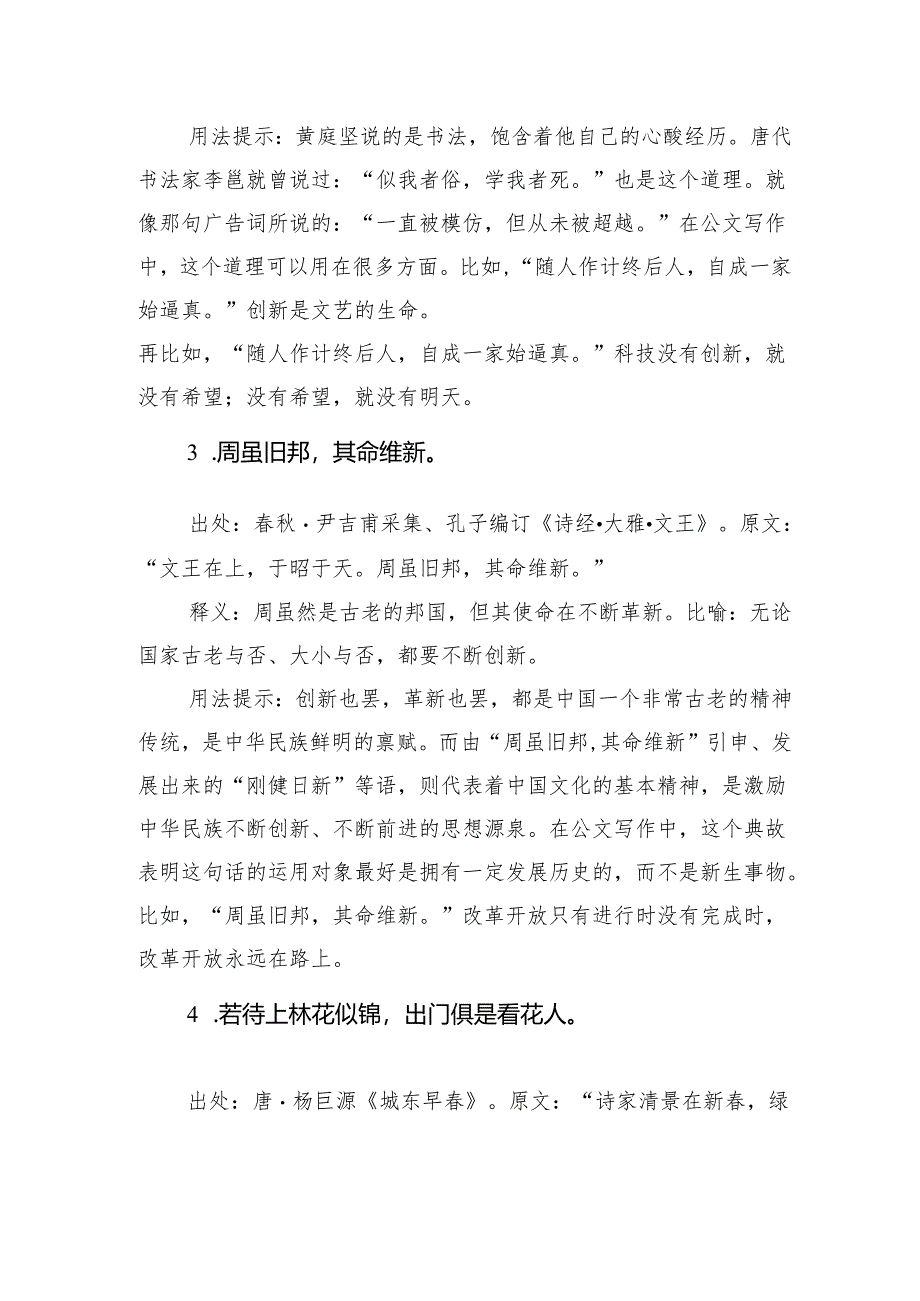 用法提示：黄庭坚说的是书法，饱含着他自己的心酸经历。唐代
书法家李邕就曾说过：“似我者俗，学我者死。”也是这个道理。就
像那句广告词所说的：“一直被模仿，但从未被超越。”在公文写作
中，这个道理可以用在很多方面。比如,“随人作计终后人，自成一家
始逼真。”创新是文艺的生命。
再比如，“随人作计终后人，自成一家始逼真。”科技没有创新，就
没有希望；没有希望，就没有明天。
3 .周虽旧邦，其命维新。
出处：春秋·尹吉甫采集、孔子编订《诗经•大雅•文王》。原文：
“文王在上，于昭于天。周虽旧邦，其命维新。”
释义：周虽然是古老的邦国，但其使命在不断革新。比喻：无论
国家古老与否、大小与否，都要不断创新。
用法提示：创新也罢，革新也罢，都是中国一个非常古老的精神
传统，是中华民族鲜明的禀赋。而由“周虽旧邦,其命维新”引申、发
展出来的“刚健日新”等语，则代表着中国文化的基本精神，是激励
中华民族不断创新、不断前进的思想源泉。在公文写作中，这个典故
表明这句话的运用对象最好是拥有一定发展历史的，而不是新生事物。
比如，“周虽旧邦，其命维新。”改革开放只有进行时没有完成时，
改革开放永远在路上。
4 .若待上林花似锦，出门俱是看花人。
出处：唐·杨巨源《城东早春》。原文：“诗家清景在新春，绿